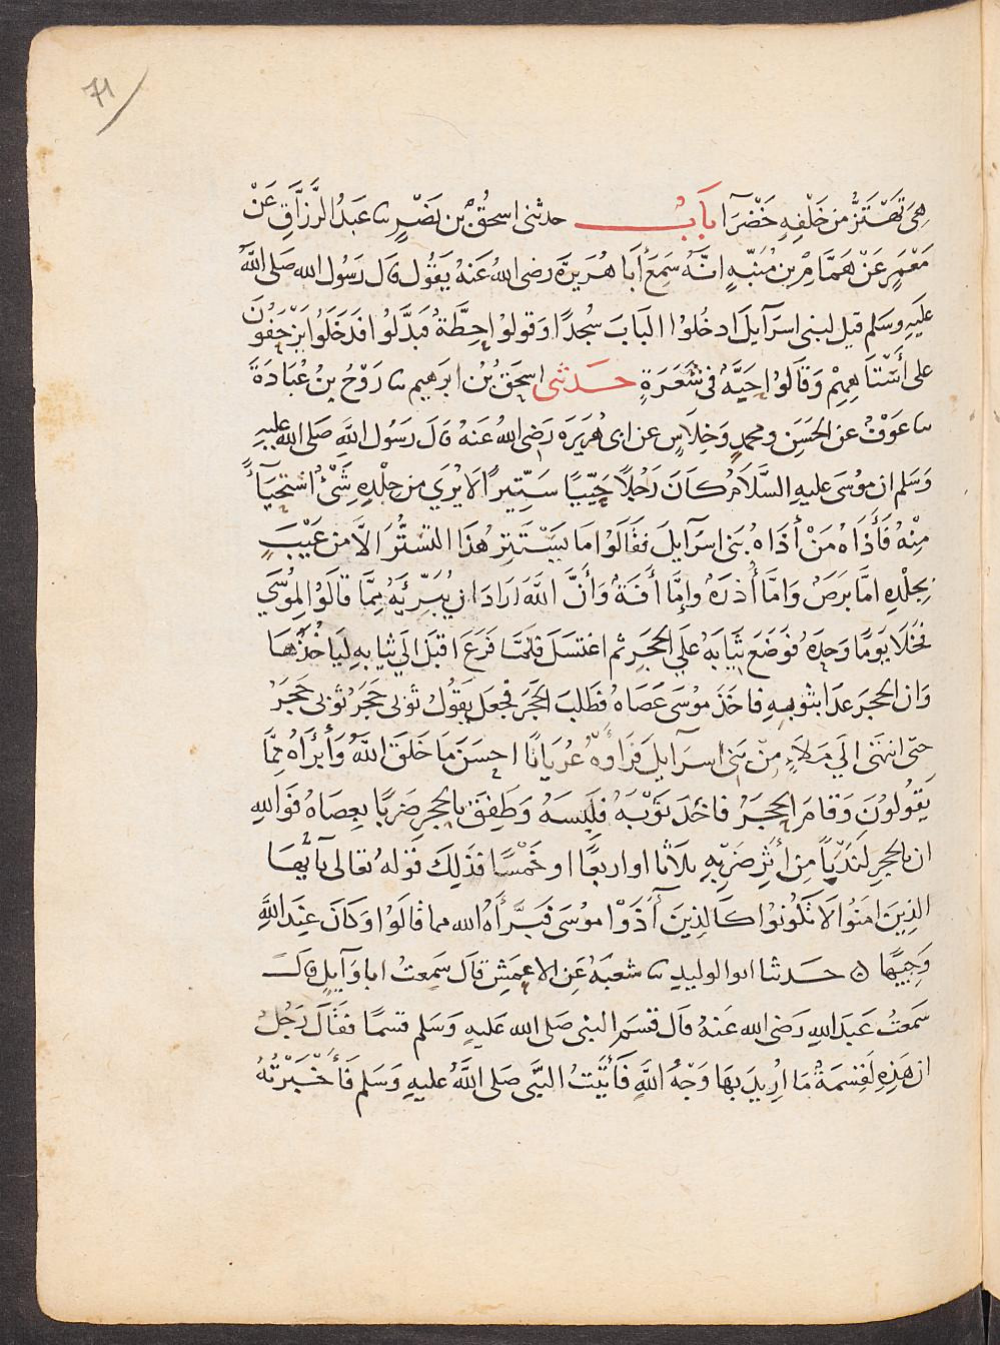 71
هِىَ تَهْتَزُّ من خَلْفِهِ خَضْرَآ بَابٌ حدثنى اسحٰقُ بن نَصْرٍ نا عَبدُ الرَّزَّاقِ عَنْ
مَعْمَرٍ عَنْ هَمَّامِ بن مُنَبِّهٍ انَّهُ سَمِعَ أَبا هُرَيرَةَ رضى اللهُ عَنهُ يَقُول قال رَسُول الله صَلى اللهُ
عليَهِ وسَلم قيل لبنى اسرَآيلَ ادخُلوُا البَابَ سُجدًا وَقولوُا حِطَّةٌ فبَدَّلوُا فدَخَلَوُا يَزْحَفُونَ
على أَسْتَاهِهِمِ وَقَالوُا حَبَّةٌ فى شَعَرَةٍ حَدثنى اسحَقُ بْنُ ابرَهيم نا رَوْحُ بنُ عُبَادَةَ
نا عَوَفٌ عن الحَسَنِ ومحمدٍ وَخِلَاسٍ عن ابى هُرَيرَه رَضى اللهُ عَنهُ قالَ رَسُول اللهِ صَلى الله عليهِ
وَسَلم ان مُوُسَى عليهِ السَّلَامُ كَانَ رَجُلًا حَيِّيًا سَتِّيرًا لَا يُرَي من جِلْدِهِ شَئٌ اسْتِحْيَآءً
مِنْهُ فَأَذَاهُ مَنْ أَذَاهُ بنى اسرَآيلَ فقَالَوُا مَا يَسْتَتِر هٰذَا التسَتُّرَ الَّا من عَيْبٍ
بجِلْدِهِ امَّا بَرَصٌ وَامَّا أُدْرَهٌ وَإِمَّا أَفَةٌ وَأَنَّ اللَّهَ ارَادَ ان يُبَرِّئَهُ مِمَّا قالوُا لِمُوسَي
فخَلَا يَومًا وَحدَهُ فوَضَعَ ثيَابَهُ عَلَي الحجَرِ ثم اغتسَلَ فلَمَّا فَرَغَ اقبَلَ الَي ثيابهِ لِيَاخُذَهَا
وَان الحجرَ عدَا بثوبهِ فاخَذَ مُوُسَى عَصَاهُ فطَلبَ الحَجَرَ فجعلَ يَقُولُ ثوبى حَجَرُ ثوبى حَجَرُ
حَتى انتهَى الَي مَلَاءٍ مِنْ بَنى اسرَآيلَ فرَاَوهُ عُرْيَانًا احسَنَ مَا خَلَقَ اللَّهُ وَأَبْرَأَهُ مِمَّا
يَقُولُونَ وَقامَ الحجَرُ فاخَذَ ثَوْبَهُ فلَبِسَهُ وَطَفِقَ بالحجرِ ضَربًا بعِصَاهُ فوَاللهِ
ان بالحجرِ لَنَدَبًا مِن أَثَرِ ضَربِهِ ثلاثا او اربعًا او خَمْسًا فذلِكَ قوله تعالى يآيُّها
الذِينَ امَنُوا لَا تكُونوُا كَالذِينَ آَذَوْا مُوسَى فَبَرَّأَهُ الله مما قالَوُا وَكانَ عِنَد اللهِ
وَجِيهًا ۝ حَدثنا ابو الوليدِ نا شعبَهُ عَنِ الاعمَشِ قالَ سَمِعتُ ابا وَآيلٍ قالَ
سَمعتُ عَبدَ اللهِ رَضى الله عَنهُ قال قسَمَ النبى صَلى الله عَليهِ وَسَلم قسمًا فقَالَ رَجُلٌ
ان هَذِهِ لَقِسمَةٌ مَا اُرِيدَ بهَا وَجْهُ اللهِ فَأَتَيْتُ النبَّى صَلى اللَّهُ عليهِ وَسَلم فَأَخْبَرْتُهُ